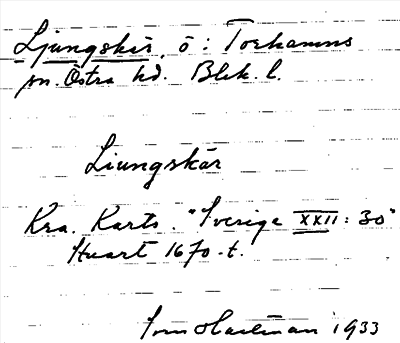 Ljungskär, ö: Torhamns
sn. Östra hd. Blek. l.
Liungskär
Kra. Karto. "Sverige XXII: 30"
Stuart 1670-t.
1933